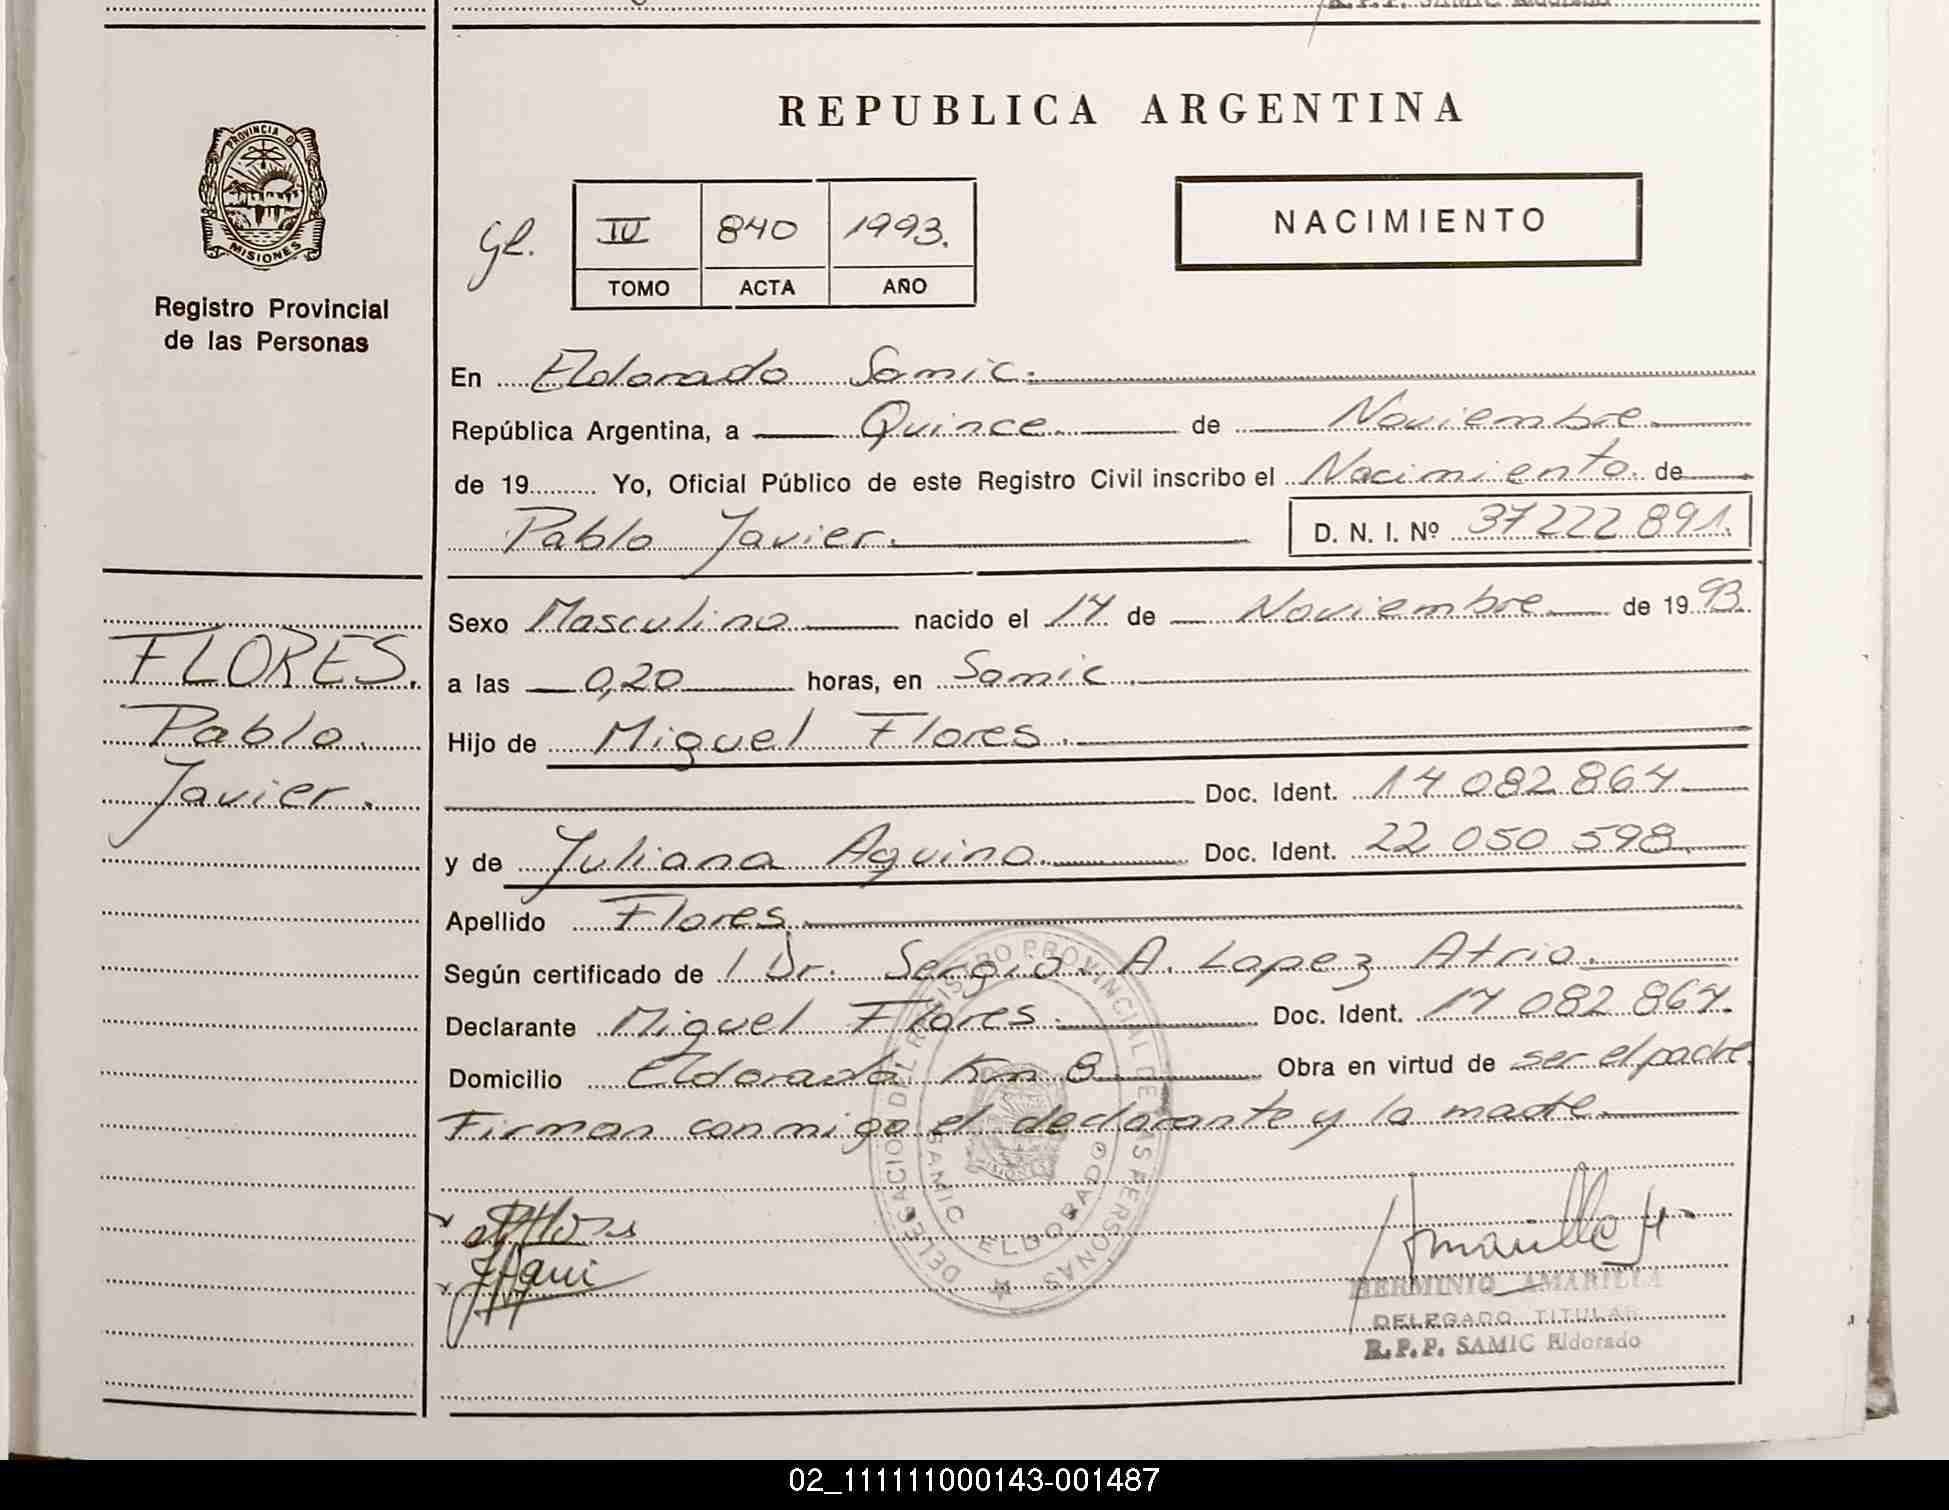 R.P.P. SAMIC Eldorado
PROVINCIA DE
MISIONES
Registro Provincial
de las Personas
REPUBLICA ARGENTINA
NACIMIENTO
IV 840 1993.
TOMO ACTA AÑO
En Eldorado Samic.
República Argentina, a Quince de Noviembre
de 19 Yo, Oficial Público de este Registro Civil inscribo el Nacimiento de
Pablo Javier. D. N. I. Nº 37222891.
FLORES.
Pablo
Javier.
Sexo Masculino nacido el 14 de Noviembre de 1993.
a las 0,20 horas, en Samic
Hijo de Miguel Flores.
Doc. Ident. 14 082 864
y de Juliana Aquino. Doc. Ident. 22 050 598
Apellido Flores
Según certificado de 1 Dr. Sergio A. Lopez Atrio.
Declarante Miguel Flores. Doc. Ident. 14 082 864.
Domicilio Eldorado Km 8 Obra en virtud de ser el padre
Firman conmigo el declarante y la madre
DELEGACION DEL REGISTRO PROVINCIAL DE LAS PERSONAS
SAMIC ELDORADO
HERMINIO AMARILLA
DELEGADO TITULAR
R.P.P. SAMIC Eldorado
02_111111000143-001487